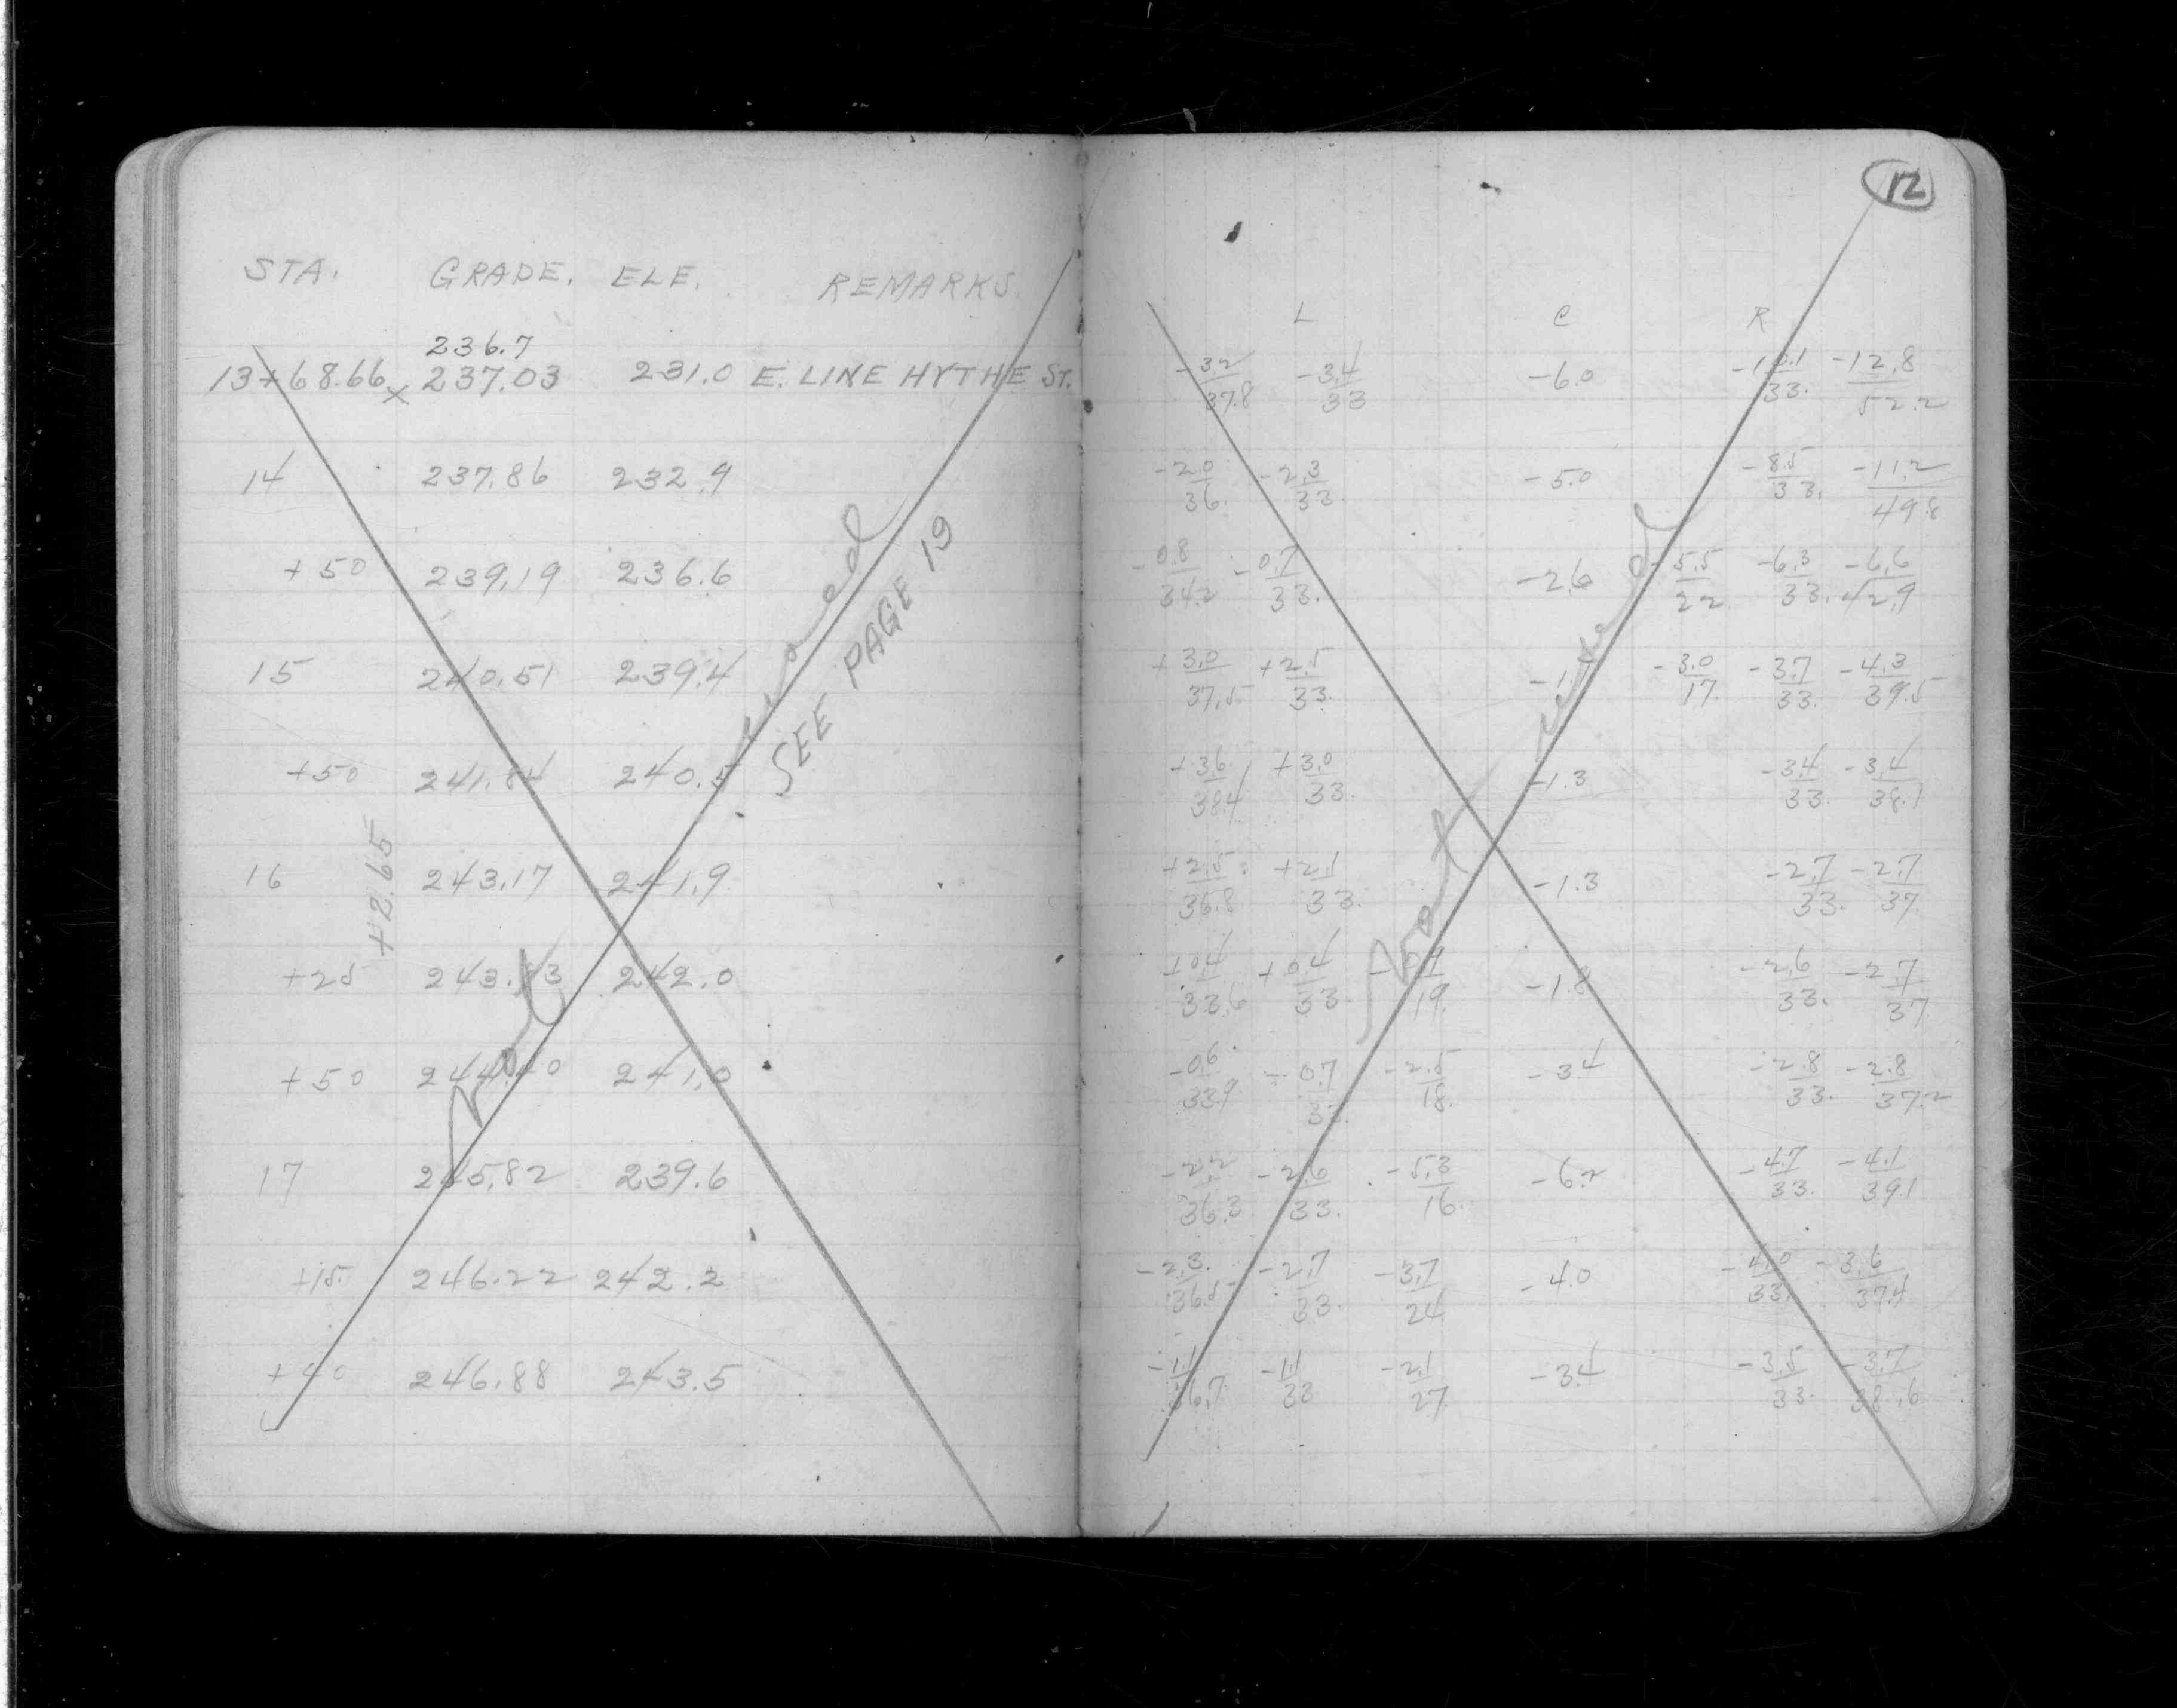 STA. GRADE. ELE. REMARKS.
236.7
13+68.66 x 237.03 231.0 E. LINE HYTHE ST.
14 237.86 232.9
+50 239.19 236.6
15 240.51 239.4
+50 241.84 240.5
16 243.17 241.9
+25 243.83 242.0
+50 244.40 241.0
17 245.82 239.6
+15 246.22 242.2
246.88 243.5
+2.65
Not used
SEE PAGE 19
12
L C R
-3.2/37.8 -3.4/33 -6.0 -10.1/33. -12.8/52.2
-2.0/36. -2.3/33. -5.0 -8.5/33. -11.2/49.8
-0.8/34.2 -0.7/33. -2.6 -5.5/22 -6.3/33. -6.6/42.9
+3.0/37.5 +2.5/33. -1. -3.0/17. -3.7/33. -4.3/39.5
+3.6/38.4 +3.0/33. -1.3 -3.4/33. -3.4/38.1
+2.5/36.8 +2.1/33. -1.3 -2.7/33. -2.7/37.
+0.4/33.6 +0.4/33. 19. -1.8 -2.6/33. -2.7/37.
-0.6/33.9 -0.7/33. -2.5/18. -3.4 -2.8/33. -2.8/37.2
-2.2/36.3 -2.6/33. -5.3/16. -6.2 -4.7/33. -4.1/39.1
-2.3./36.5 -2.7/33. -3.7/24 -4.0 -4.0/33. -3.6/37.4
-1.1/36.7 -1.1/33 -2.1/27. -3.4 -3.5/33. -3.7/38.6
Not used